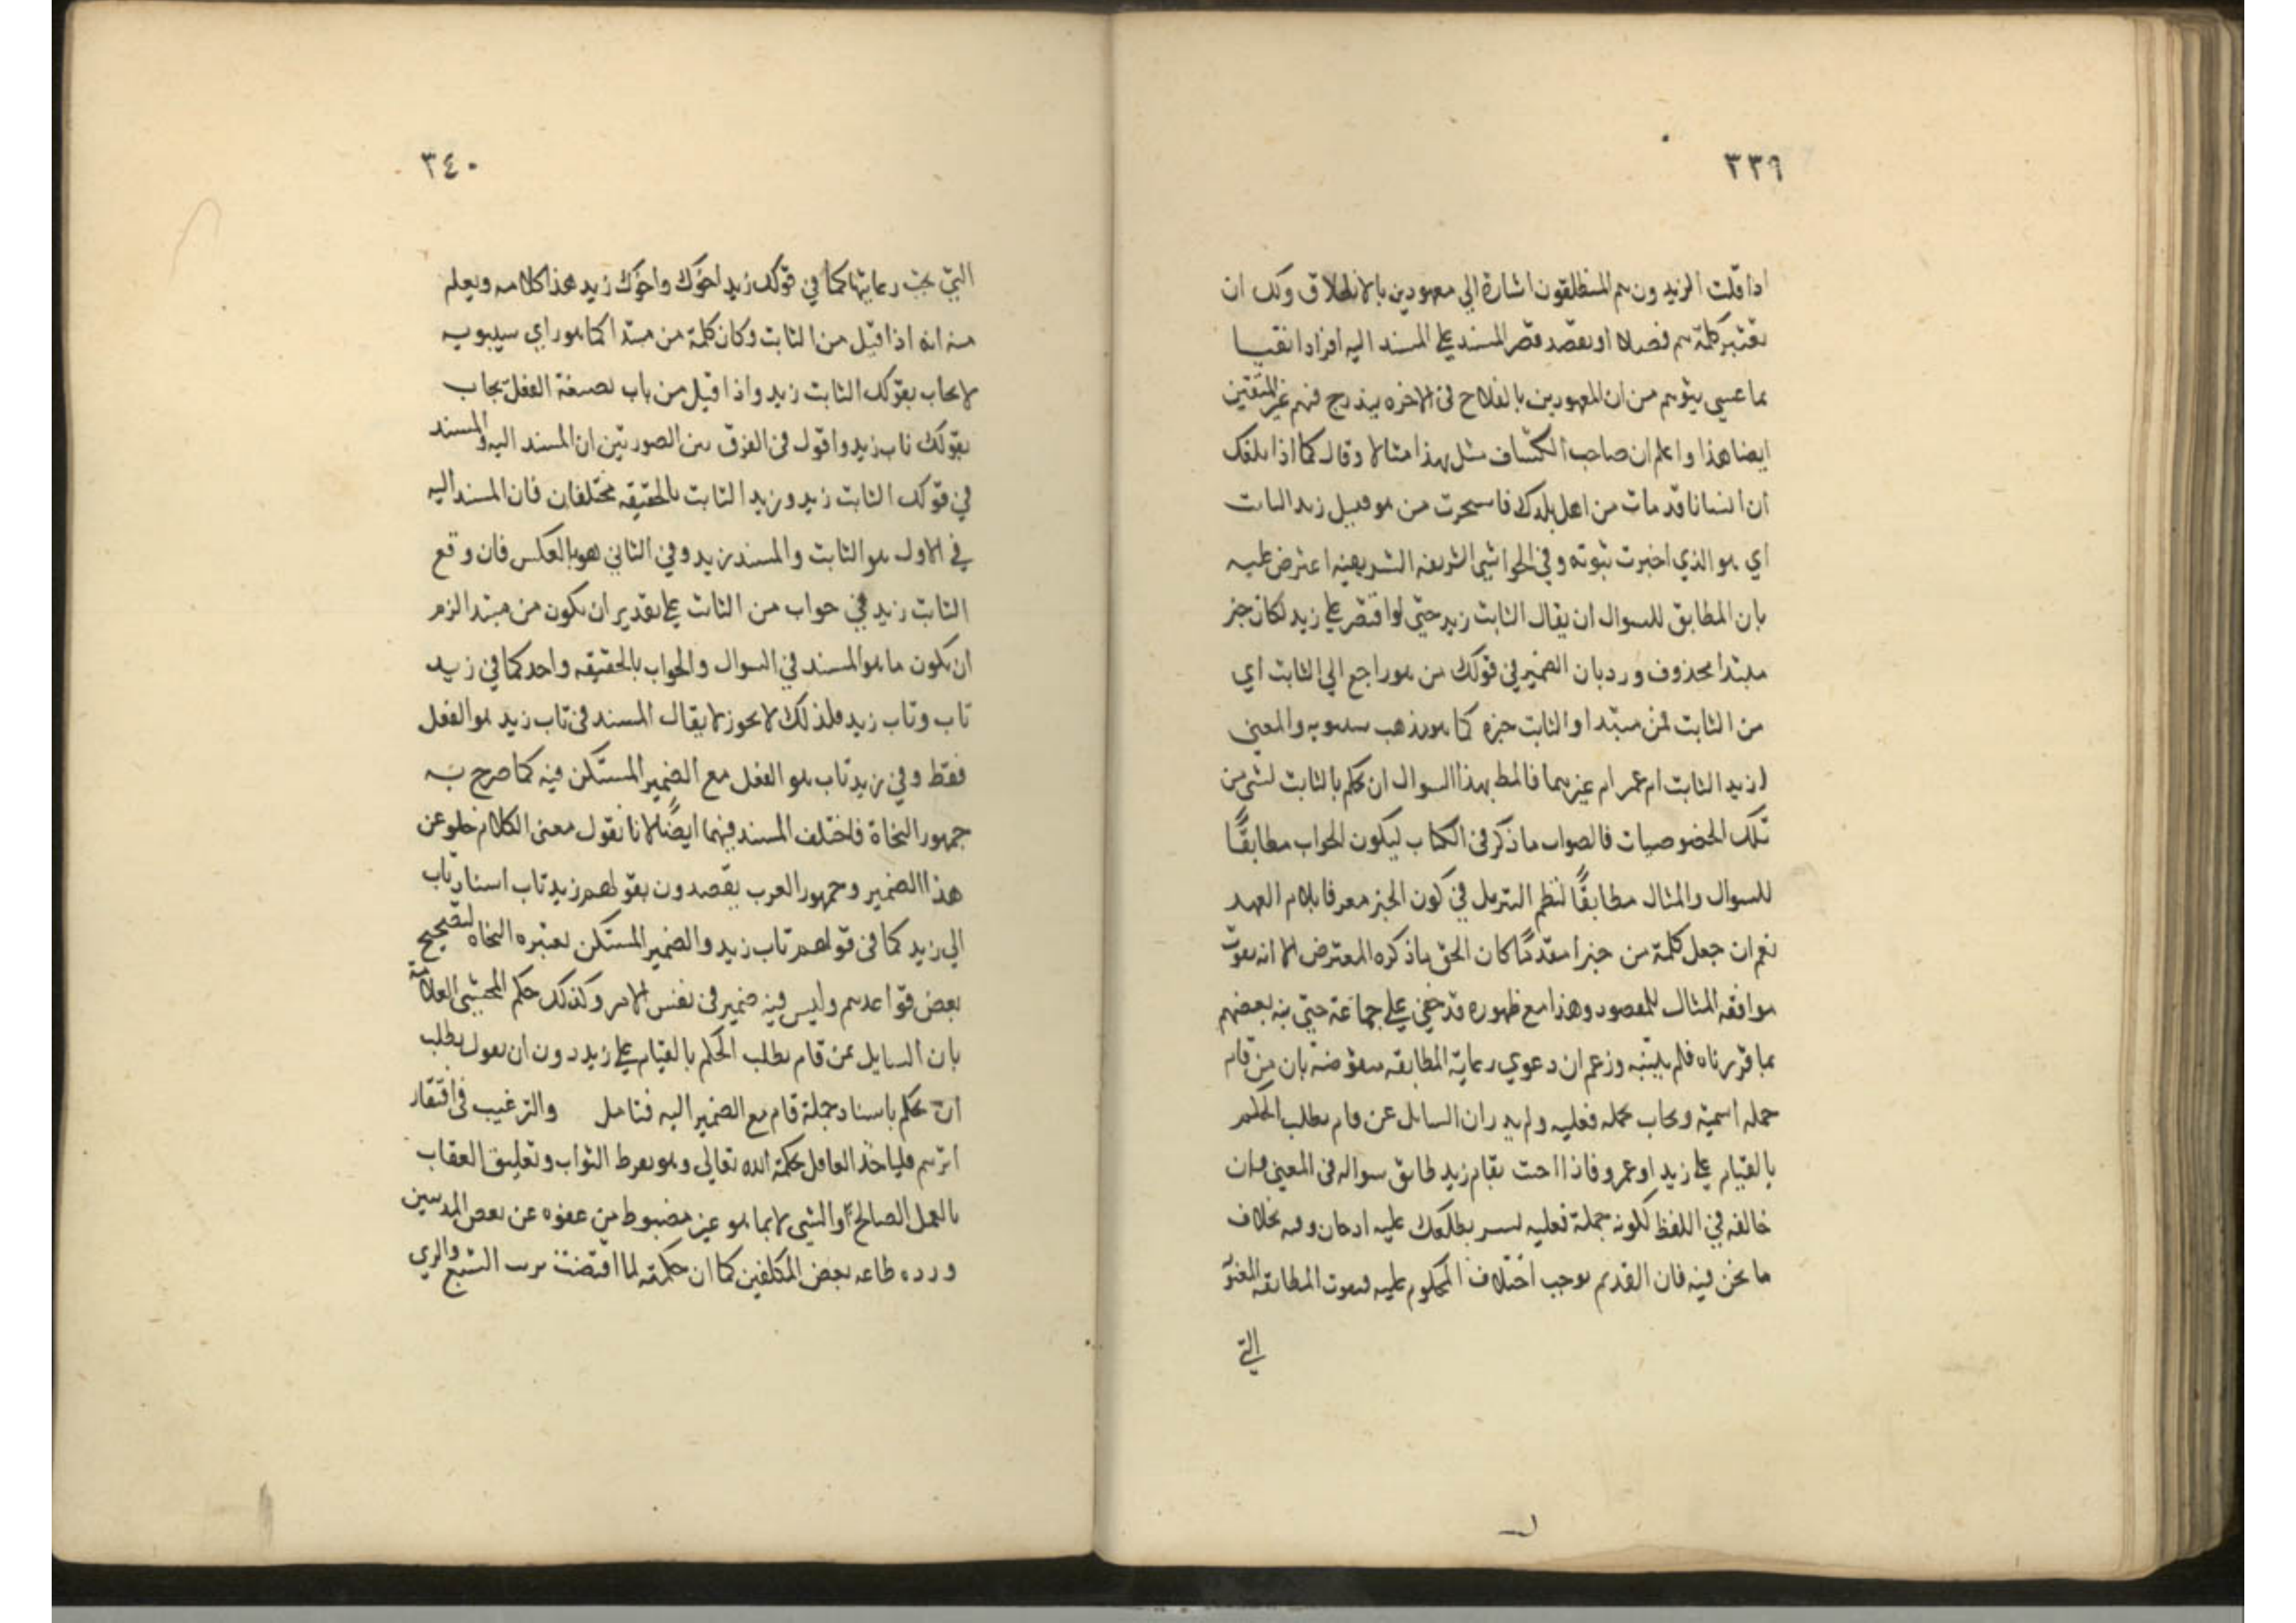 ٣٣٩
اذا قلت الزيدون هم المنطلقون اشارة الي معهودين بالانطلاق ولك ان
تعتبر كلمة هم فصلا او بقصد قصر المسند علي المسند اليه افرادا نفيا
لما عسي يتوهم من ان المعهودين بالفلاح في الاخره يندرج فيهم غير المتقين
ايضا هذا واعلم ان صاحب الكشاف مثل بهذا مثالا وقال كما اذا بلغك
ان انسانا قد تاب من اهل بلدك فاستخبرت من هو فقيل زيد التائب
اي هو الذي اخبرت بتوبته وفي الحواشي الشريفه الشريفيه اعترض عليه
بان المطابق للسوال ان يقال التائب زيد حتي لو اقتصر علي زيد لكان خبر
مبتدا محذوف ورد بان الضمير في قولك من هو راجع الي التائب اي
من التائب فمن مبتدا والتائب خبره كما هو مذهب سيبويه والمعني
ازيد التائب ام عمرو ام غيرهما فالمط بهذا السوال ان يحكم بالتائب لشي من
تلك الخصوصيات فالصواب ما ذكر في الكتاب ليكون الجواب مطابقًا
للسوال والمثال مطابقًا لنظم التنزيل في كون الخبر معرفا بلام العهد
نعم ان جعل كلمة من خبرا مقدمًا كان الحق ما ذكره المعترض الا انه يفوت
موافقه المثال للمقصود وهذا مع ظهوره قد خفي علي جماعة حتي نبه بعضهم
بما قررناه فلم يتنبه وزعم ان دعوي رعاية المطابقه منقوضة بان من قام
جمله اسمية ويجاب بجمله فعليه ولم يدر ان السائل عن قام يطلب الحكم
بالقيام علي زيد او عمرو فاذا اجبت بقام زيد طابق سواله في المعني وان
خالفه في اللفظ لكونه جملة فعليه لسر يطلعك عليه اذعان وفيه بخلاف
ما نحن فيه فان القديم يوجب اختلاف المحكوم عليه فيفوت المطابقه المعنوية
التي
٣٤٠
التي يجب رعايتها كما في قولك زيد اخوك واخوك زيد هذا كلامه ويعلم
منه انه اذا قيل من التائب وكان كلمة من مبتدا كما هو راي سيبويه
لا يجاب بقولك التائب زيد واذا قيل من تاب بصيغة الفعل يجاب
بقولك تاب زيد واقول في الفرق بين الصورتين ان المسند اليه والمسند
في قولك التائب زيد وزيد التائب بالحقيقه مختلفان فان المسند اليه
في الاول هو التائب والمسند زيد وفي الثاني هو بالعكس فان وقع
التائب زيد في جواب من التائب علي تقدير ان يكون من مبتدا لزم
ان يكون ما هو المسند في السوال والجواب بالحقيقه واحد كما في زيد
تاب وتاب زيد فلذلك لا يجوز لا يقال المسند في تاب زيد هو الفعل
فقط وفي زيد تاب هو الفعل مع الضمير المستكن فيه كما صرح به
جمهور النحاة فاختلف المسند فيهما ايضًا لانا نقول معني الكلام خلو عن
هذا الضمير وجمهور العرب يقصدون بقولهم زيد تاب اسناد تاب
الي زيد كما في قولهم تاب زيد والضمير المستكن يعتبره النحاه لتصحيح
بعض قواعدهم وليس فيه ضمير في نفس الامر وكذلك حكم المحشي العلامة
بان السايل بمن قام يطلب الحكم بالقيام علي زيد دون ان يقول يطلب
ان يحكم باسناد جملة قام مع الضمير اليه فتامل والترغيب في اقتفار
اثرهم فلياخذ العاقل بحكمة الله تعالي وهو يعرط الثواب وتعليق العقاب
بالعمل الصالح او الشي لا بما هو غير مضبوط من عفوه عن بعض المذنبين
ورده طاعه بعض المكلفين كما ان حكمته لما اقتضت ترتب الشبع والري